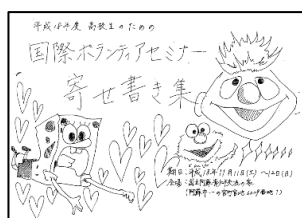 平成18年度 高校生のための
国際ボランティアセミナー
寄せ書き集
期日：平成18年11月11日(土)～12日(日)
会場：国立阿蘇青少年交流の家